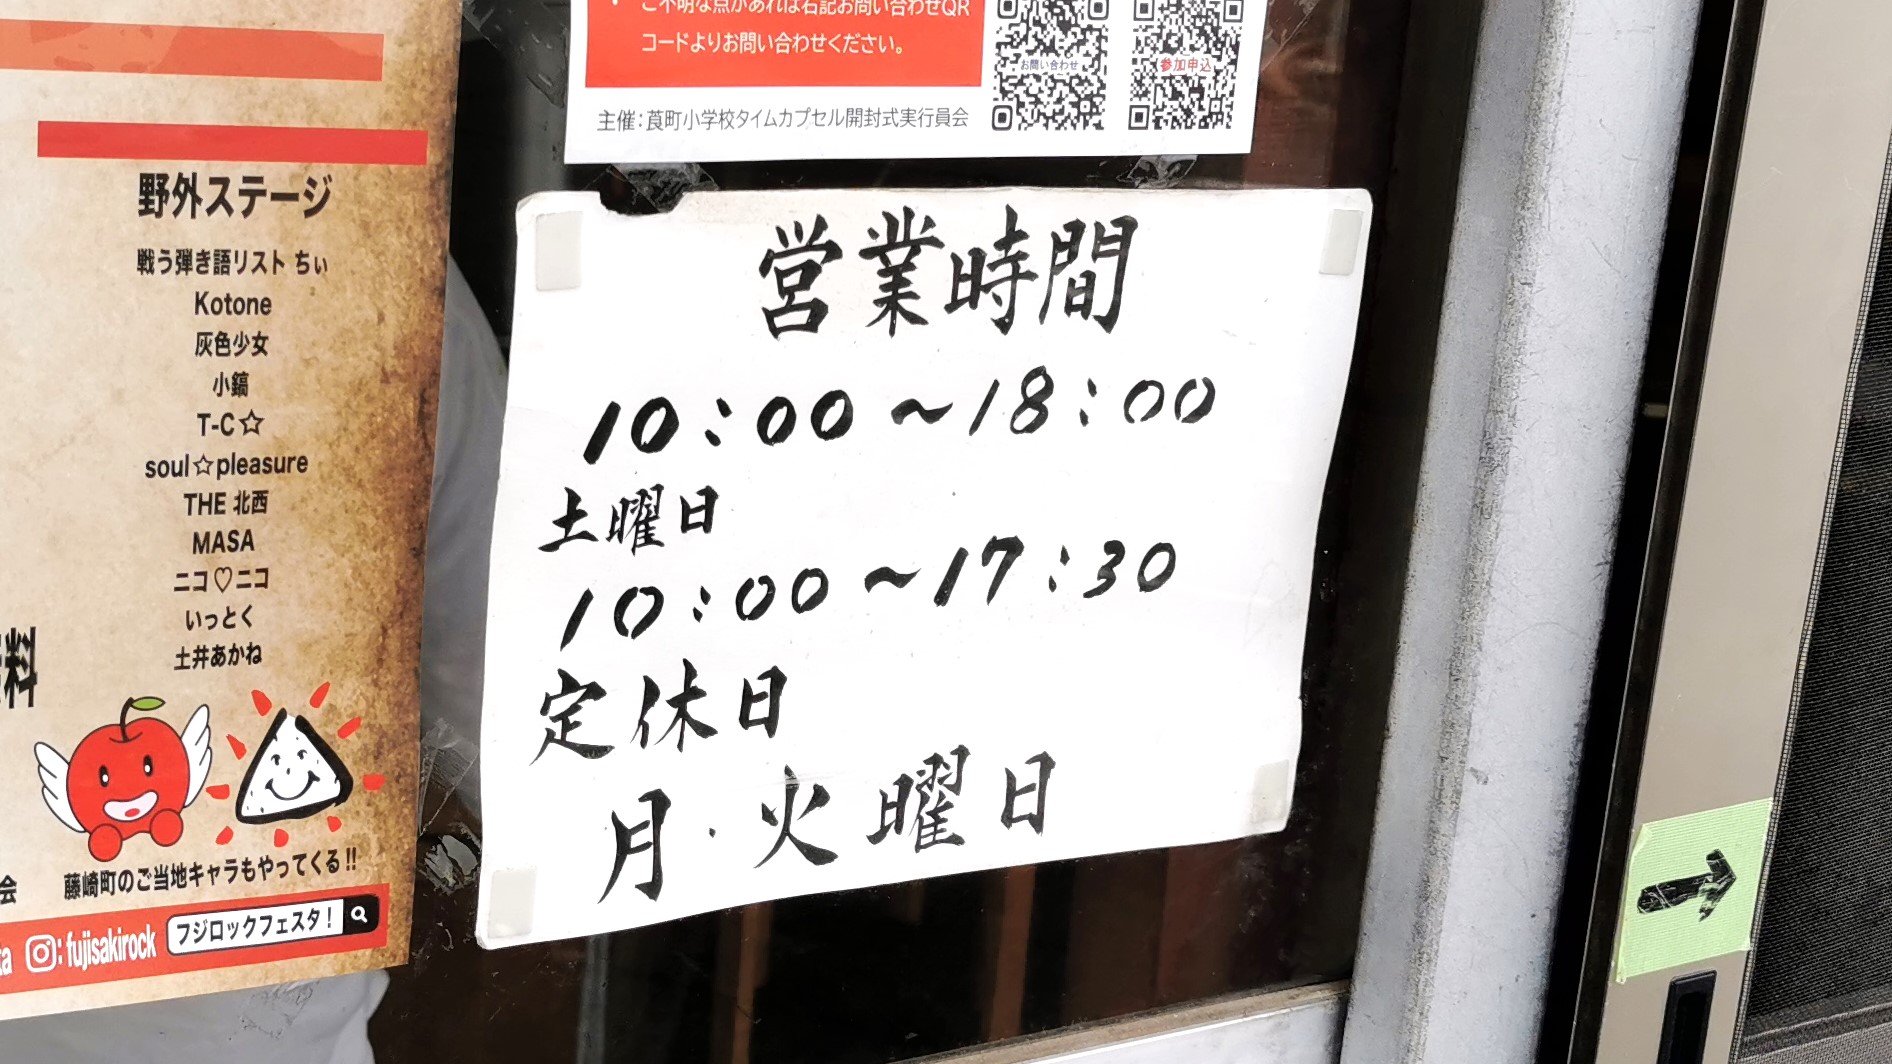 野外ステージ
戦う弾き語リスト ちぃ
Kotone
灰色少女
小鎬
T-C☆
soul☆pleasure
THE 北西
MASA
ニコ♡ニコ
いっとく
土井あかね
料
藤崎町のご当地キャラもやってくる!!
会
ta
:fujisakirock
フジロックフェスタ!
・ご不明な点があれば右記お問い合わせQR
コードよりお問い合わせください。
お問い合わせ
参加申込
主催:莨町小学校タイムカプセル開封式実行員会
営業時間
10:00~18:00
土曜日
10:00~17:30
定休日
月・火曜日